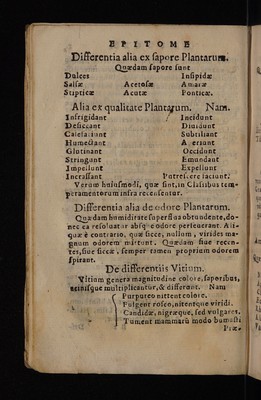 EPITOME
Differentia alia ex sapore Plantarum.
Quædam sapore sunt
Dulces Insipidæ
Salsæ Acetosæ Amaræ
Stipticæ Acutæ Ponticæ.
Alia ex qualitate Plantarum. Nam.
Infrigidant Incidunt
Desiccant Diuidunt
Calefaciunt Subtiliant
Humectant Aperiunt
Glutinant Occidunt
Stringunt Emundant
Impellunt Expellunt
Incrassant Putrescere faciunt.
Verum huiusmodi, quæ sint, in Classibus tem-
peramentorum infra recensentur.
Differentia alia de odore Plantarum.
Quædam humiditate superflua obtundente, do-
nec ea resoluatur absque odore perseuerant. Ali-
quæ è contrario, quæ siccæ, nullum, virides ma-
gnum odorem mittunt. Quædam siue recen-
tes, siue siccæ, semper tamen proprium odorem
spirant.
De differentiis Vitium.
Vitium genera magnitudine colore, saporibus,
acinisque multiplicentur, & differunt. Nam
Purpureo nittent colore.
Fulgent roseo, nitentque viridi.
Candidæ, nigræque, sed vulgares.
Tument mammarū modo bumasti
Præ-